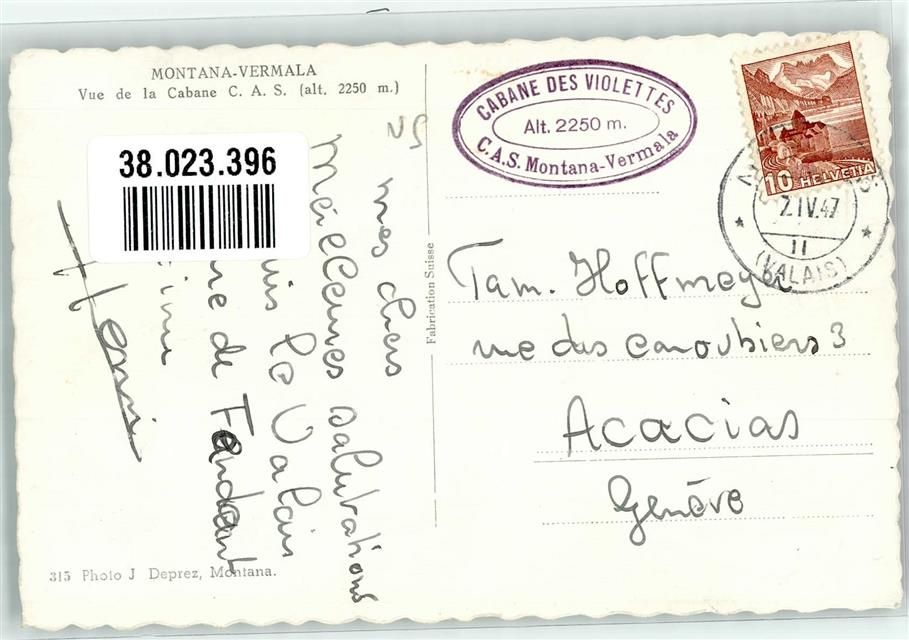 MONTANA-VERMALA
Vue de la Cabane C. A. S. (alt. 2250 m.)
38.023.396
mes chers
Meilleures salutations
le Valais
de Fendant
Henri
315 Photo J Deprez, Montana.
Fabrication Suisse
CABANE DES VIOLETTES
Alt. 2250 m.
C.A.S. Montana-Vermala
10 HELVETIA
7.IV.47
11
(VALAIS)
Fam. Hoffmeyer
rue des caroubiers 3
Acacias
Genève